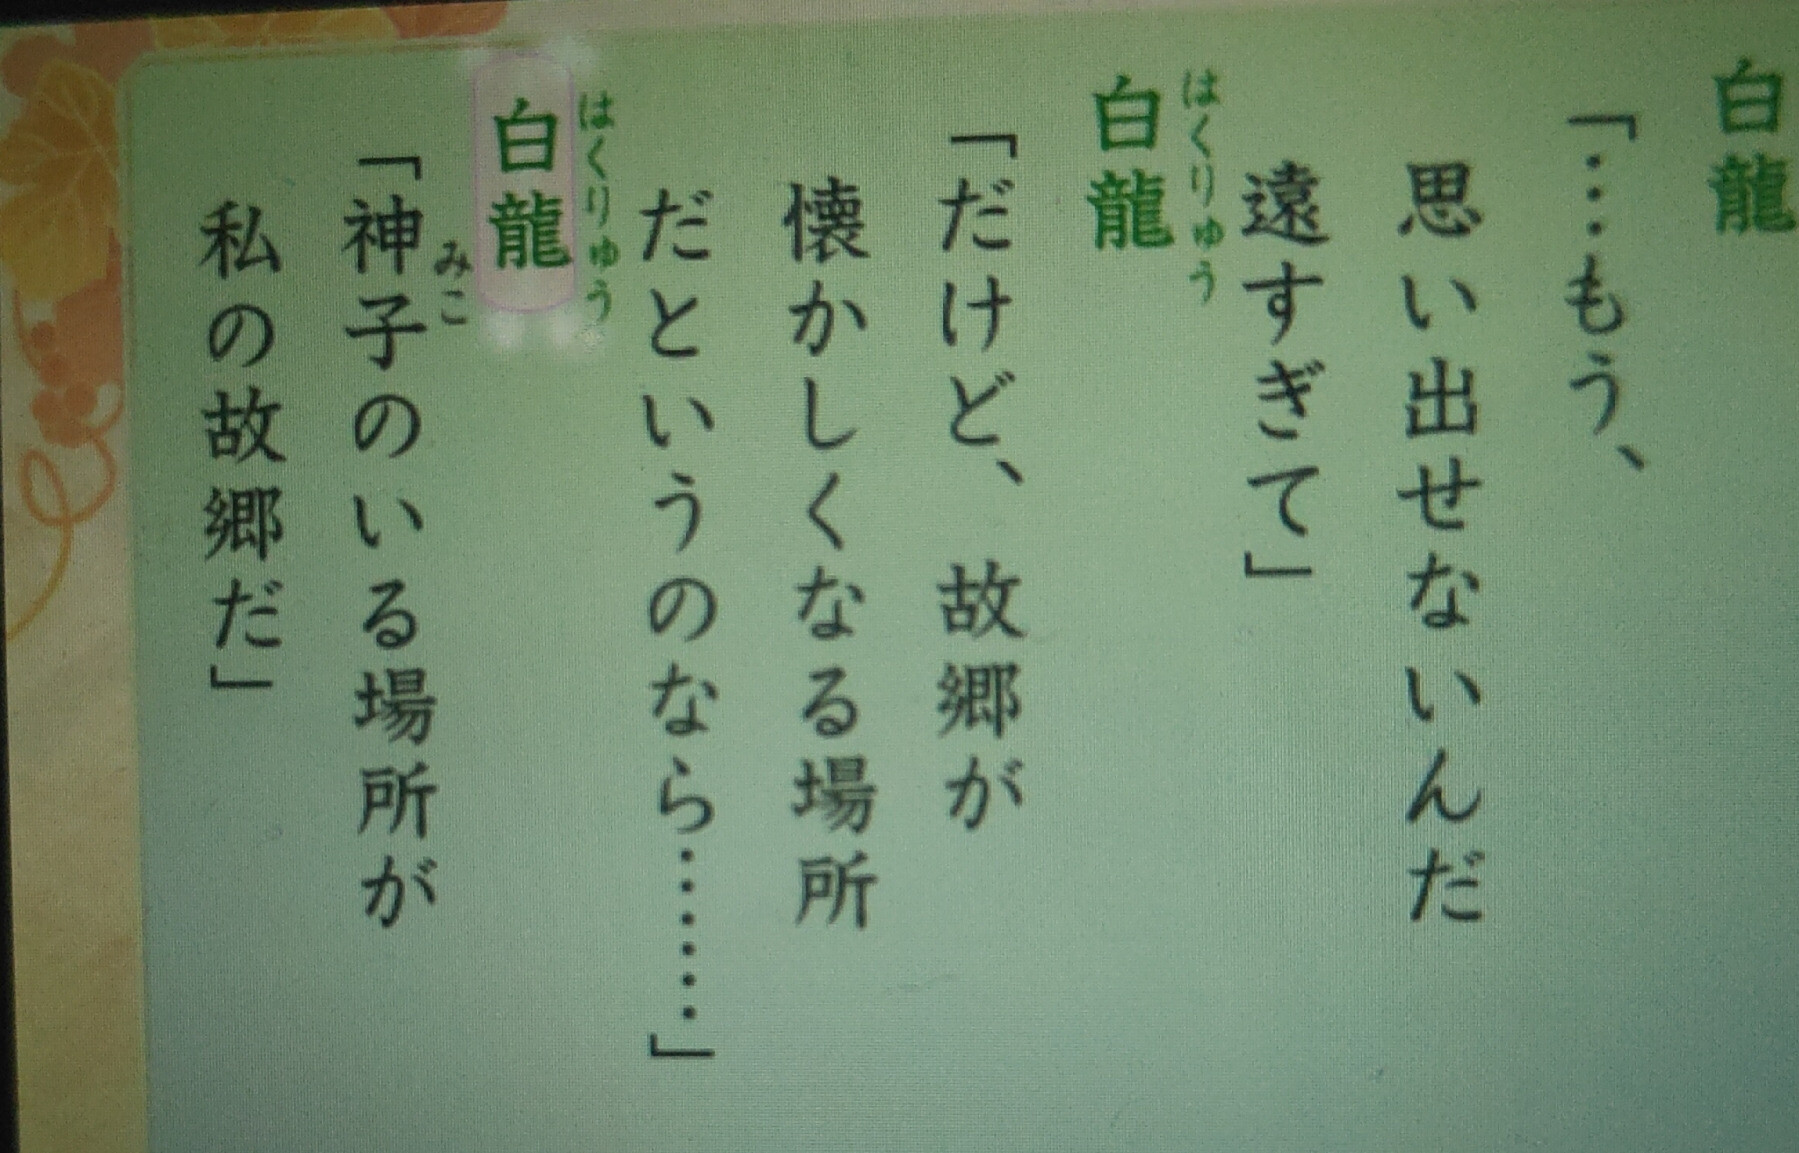 白龍
「…もう、
思い出せないんだ
遠すぎて」
はくりゅう
白龍
「だけど、故郷が
懐かしくなる場所
だというのなら……」
はくりゅう
白龍
みこ
「神子のいる場所が
私の故郷だ」